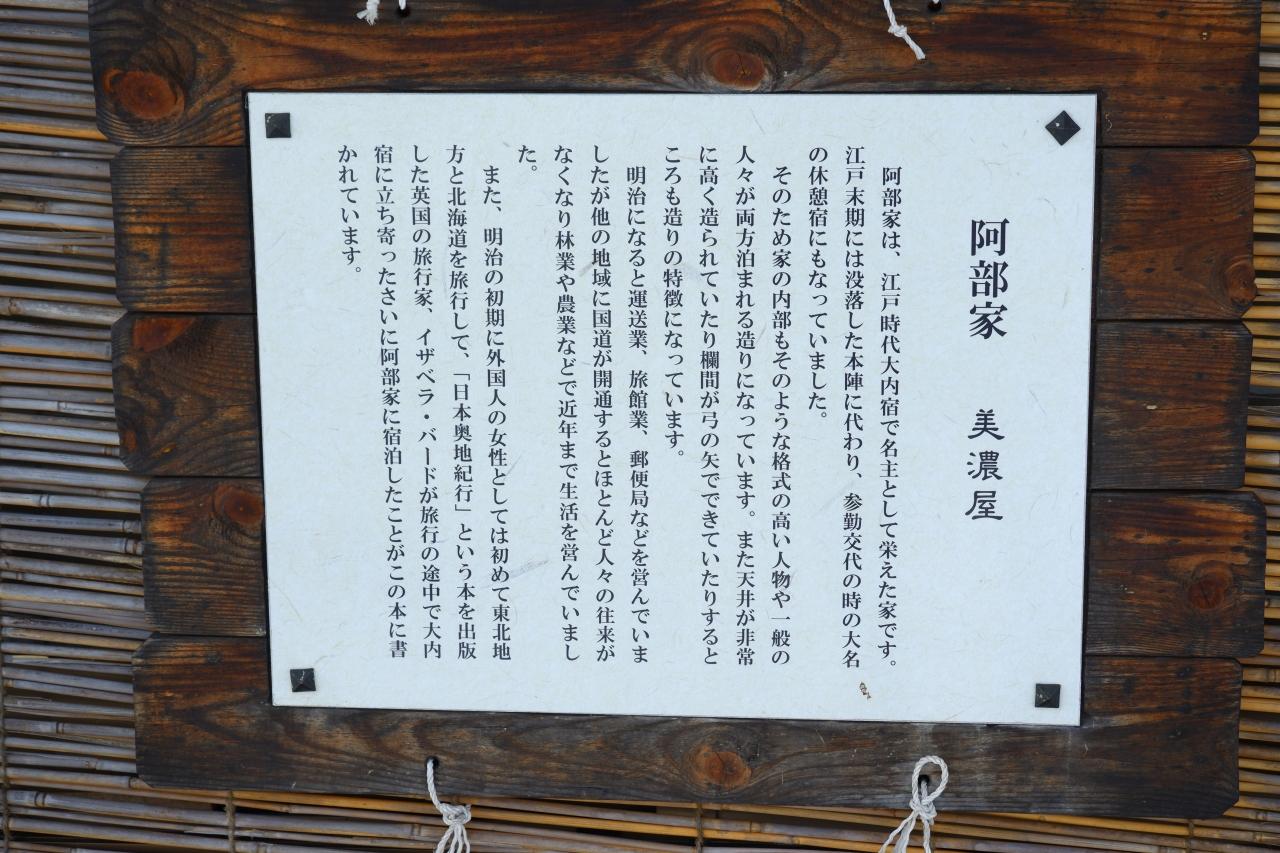 阿部家　美濃屋
阿部家は、江戸時代大内宿で名主として栄えた家です。
江戸末期には没落した本陣に代わり、参勤交代の時の大名
の休憩宿にもなっていました。
そのため家の内部もそのような格式の高い人物や一般の
人々が両方泊まれる造りになっています。また天井が非常
に高く造られていたり欄間が弓の矢でできていたりすると
ころも造りの特徴になっています。
明治になると運送業、旅館業、郵便局などを営んでいま
したが他の地域に国道が開通するとほとんど人々の往来が
なくなり林業や農業などで近年まで生活を営んでいまし
た。
また、明治の初期に外国人の女性としては初めて東北地
方と北海道を旅行して、「日本奥地紀行」という本を出版
した英国の旅行家、イザベラ・バードが旅行の途中で大内
宿に立ち寄ったさいに阿部家に宿泊したことがこの本に書
かれています。